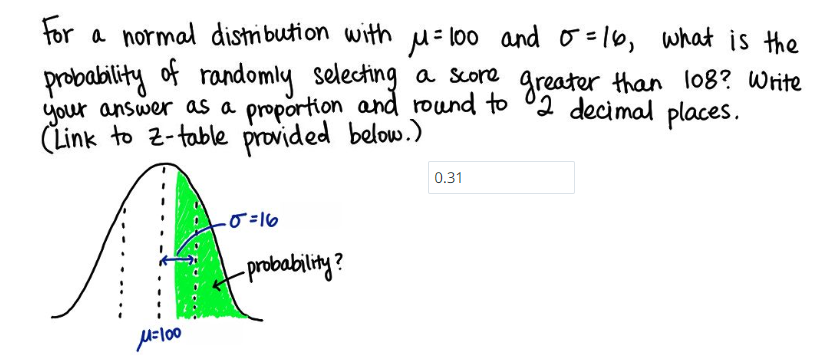 For a normal distribution with μ=100 and σ=16, what is the
probability of randomly selecting a score greater than 108? Write
your answer as a proportion and round to 2 decimal places.
(Link to z-table provided below.)
0.31
σ=16
probability?
μ=100